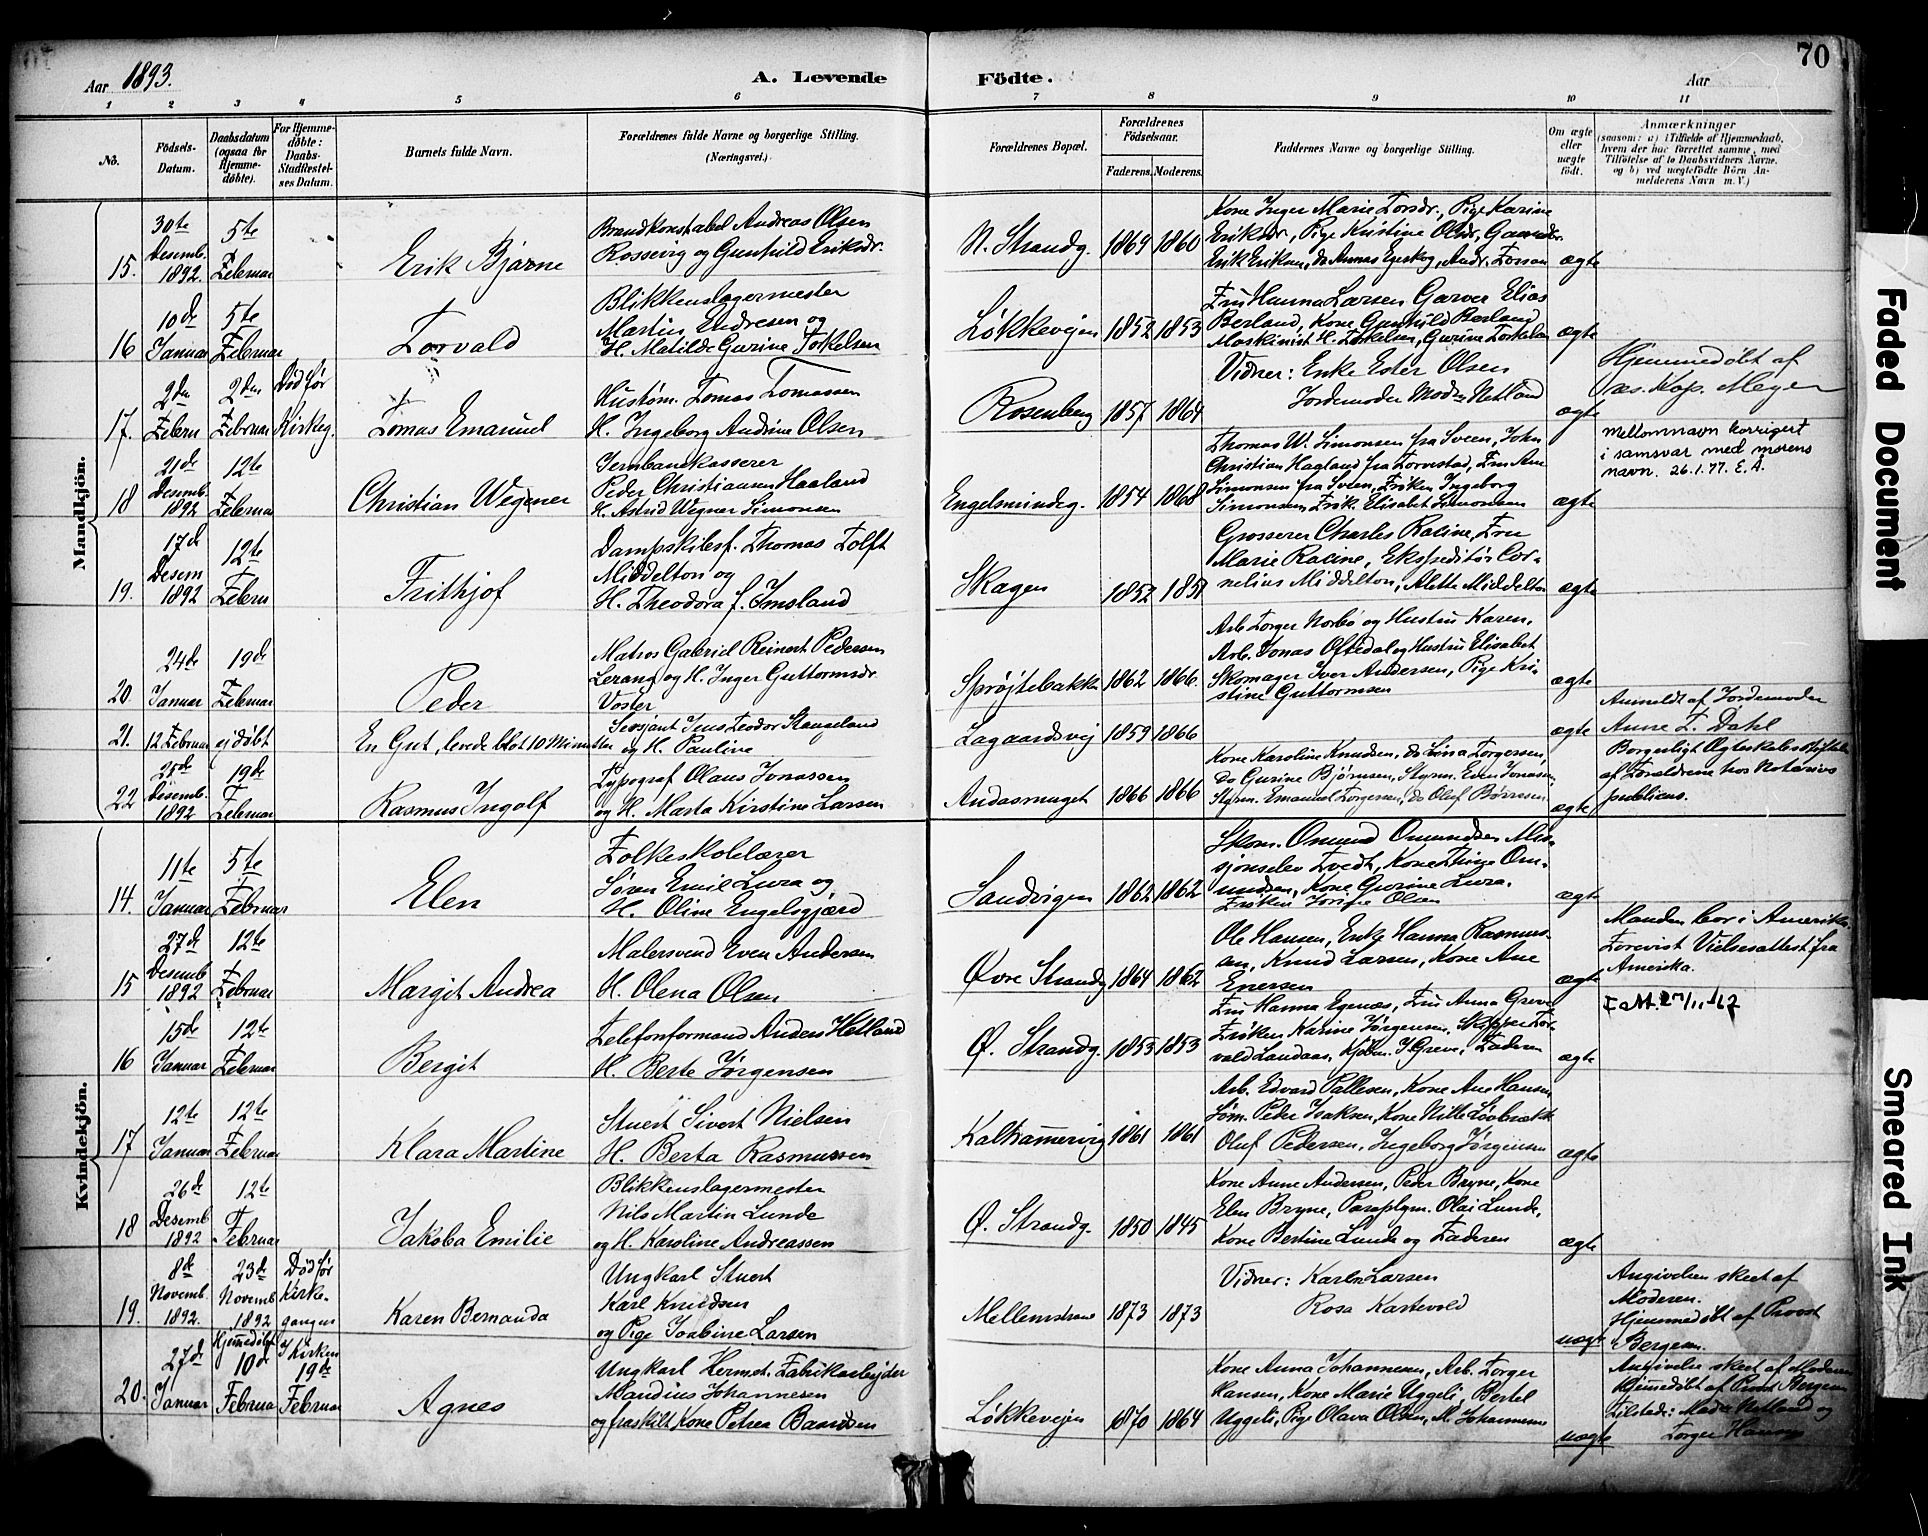 70
Aar 1893.
A. Levende Födte.
Aar
1 2 3 4 5 6 7 8 9 10 11
Nö.
Födsels-Datum.
Daabsdatum (ogsaa för Hjemme-döbte).
For Hjemme-döbte: Daabs-Stadfæstel-ses Datum.
Barnets fulde Navn.
Forældrenes fulde Navne og borgerlige Stilling.
(Næringsvei.)
Forældrenes Bopæl.
Forældrenes Födselsaar.
Faderens. Moderens.
Faddernes Navne og borgerlige Stilling.
Om ægte eller uægte födt.
Anmærkninger
(saasom: a) i Tilfælde af Hjemmedaab, hvem der har forrettet samme, med Tilföielse af to Daabsvidners Navne. og b) ved uægtefödte Börn An-melderens Navn m. V.)
Mandkjön.
15. 30te Desemb. 1892. 5te Februar
Erik Bjarne
Brandkonstabel Andreas Olsen
Rossevig og Gunhild Eriksdr.
N. Strandg. 1869 1860
Kone Inger Marie Torsdr., Pige Karine
Eriksdr., Pige Kristine Olsdr,
ægte
16 10de Januar 5te Februar
Torvald
Blikkenslagermester
Martin Endresen og
H. Matilde Gurine Torkelsen
Løkkevejen 1852 1853
Fru Hanna Larsen Garver Elias
Berland, Kone Gunhild Berland
Maskinist H. Torkelsen, Gurine Torkelsen
ægte
17. 2den Febru 2den Februar Død før Kirkeg.
Tomas Emanuel
Tomas Tomassen
H. Ingeborg Andrine Olsen
Rosenberg 1857 1864
Vidner: Enke Ester Olsen
Jordemoder Netland
ægte
Hjemmedøbt af
res. Kap. Meyer
18 21de Desemb. 1892 12te Februar
Christian Wegner
Jernbanekasserer
Peder Christiansen Haaland
H. Astrid Wegner Simonsen
Engelsmindeg. 1854 1868
Thomas W. Simonsen fra Sveen, John
Christian Haaland fra
Simonsen fra Sveen, Frøken Ingeborg
Simonsen, Frøk. Elisabet Simonsen
ægte
mellomnavn korrigert
i samsvar med morens
navn. 26.1.77. E.Å.
19. 17de Desem 1892 12te Febru
Frithjof
Dampskibsf. Thomas Tolft
Middelton og
H. Theodora f. Imsland
Skagen 1852 1851
Grosserer Charles Racine, Fru
Marie Racine, Ekspeditør Cor-
nelius Middelton, Alette Middelton
ægte
20. 24de Januar 19de Februar
Peder
Matros Gabriel Reinert Pedersen
Lerang og H. Inger Guttormsdr.
Voster
Sprøjtebakken 1862 1866
Arb. Torger Norbø og Hustru Karen,
Arb. Jonas Oftedal og Hustru Elisabet
Skomager Iver Andersen, Pige Kri-
stine Guttormsen
ægte
21. 12 Februar ej døbt
En Gut, levede blot 10 Minutter
Sersjant Jens Teodor Stangeland
og H. Pauline
Lagaardsvej 1859 1866
ægte
Anmeldt af Jordemoder
Anne T. Dahl
22 25de Desemb. 1892 19de Februar
Rasmus Ingolf
Typograf Olaus Jonassen
og H. Marta Kirstine Larsen
Andasmuget 1866 1866
Kone Karoline Knudsen, do Lina Torgersen,
Do Gurine Bjørnsen, Styrm. Even Jonasen,
Styrm. Emanuel Torgersen, do Oluf
ægte
Borgerligt Ægteskab stiftet
af Forældrene hos Notarius
publicus.
Kvindekjön.
14. 11te Januar 5te Februar
Elen
Folkeskolelærer
Søren Emil Lura og
H. Oline Engelsgjærd
Sandvigen 1862 1862
Skom. Omund Omundsen Mis-
sjonselev Tvedt, Kone Om-
undsen, Kone Gurine Lura,
Frøken Olsen
ægte
15 27de Desemb 1892 12te Februar
Margit Andrea
Malersvend Even Andersen
H. Olena Olsen
Øvre Strandg 1864 1862
Ole Hansen, Enke Hanna Rasmus-
sen, Knud Larsen, Kone Ane
Enersen
ægte
Manden bor i Amerika.
Forevist Vielsesattest fra
Amerika.
16 15de Januar 12te Februar
Bergit
Telefonformand Anders Hetland
H. Berte Jørgensen
Ø. Strandg. 1853 1853
Fru Hanna Egenæs, Fru Anna Greve
Frøken Karine Jørgensen, Skipper Tor-
vald Landaas, Kjøbm. J Greve, Faderen
ægte
17 12te Januar 12te Februar
Klara Martine
Stuert Sivert Nielsen
H. Berta Rasmussen
Kalhammervig 1861 1861
Arb. Edvard Pallesen, Kone Ane Hansen
Søm. Peder Isaksen, Kone
Oluf Pedersen, Ingeborg Jørgensen
ægte
18 26de Desemb 1892 12te Februar
Jakoba Emilie
Blikkenslagermester
Nils Martin Lunde
og H. Karoline Andreassen
Ø. Strandg. 1850 1845
Kone Anne Andersen, Peder Bryne, Kone
Elen Bryne, Olai Lunde,
Kone Bertine Lunde og Faderen
ægte
19. 8de Novemb. 1892. 23de Novemb 1892 Død før Kirke-gangen
Karen Bernanda
Ungkarl Stuert
Karl Knudsen
og Pige Jœbine Larsen
Mellemstrane 1873 1873
Vidner: Karln Larsen
Rosa Kartevold
uægte
Angivelsen skeet af
Moderen.
Hjemmedøbt af Provst
Bergesen.
20. 27de Januar Hjemmedøbt 10de Februar I Kirken 19de Februar
Agnes
Ungkarl Hermet. Fabrikarbejder
Mandius Johannesen
og fraskilt Kone Petrea Baardsen
Løkkevejen 1870 1864
Kone Anna Johannesen, Arb. Torger
Hansen, Kone Marie Uggeli, Bertel
Uggeli, Pige Olava Olsen, M. Johannesen
uægte
Angivelse skeet af Moderen
Hjemmedøbt af Provst Bergesen
Tilstede: Netland og
Torger Hansen
Faded Document
Smeared Ink